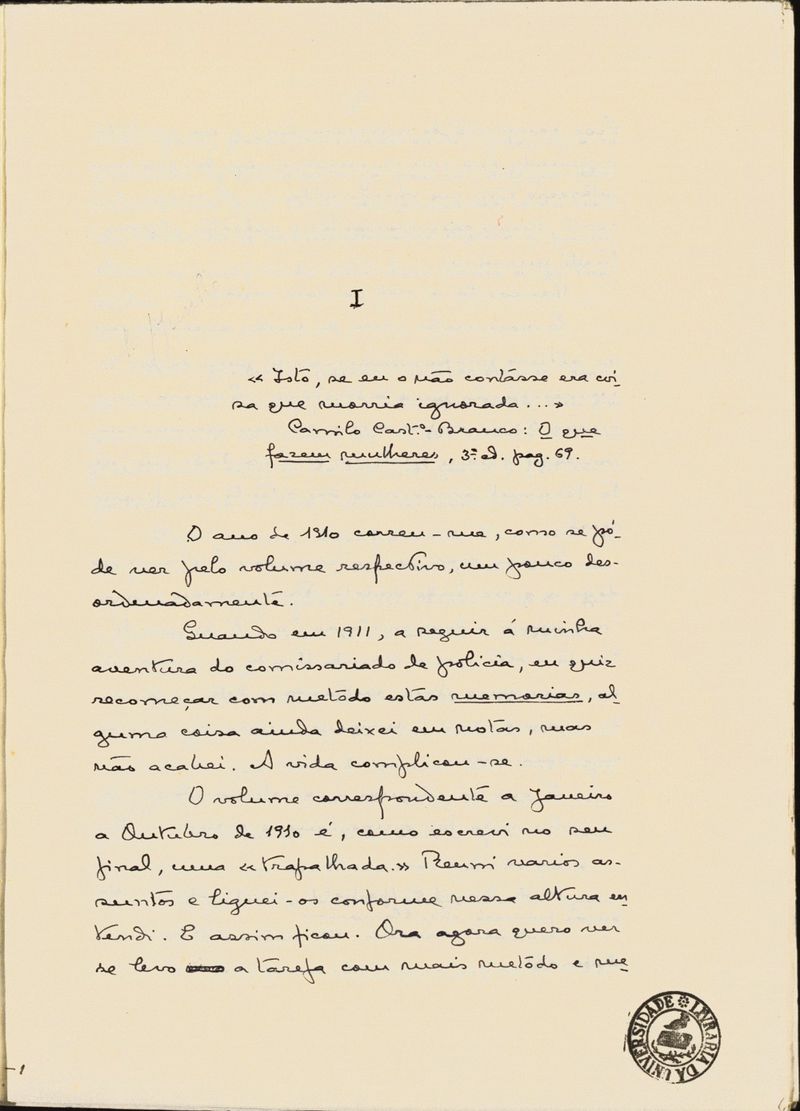 I
« Isto, se eu o não contásse era coi-
sa que morria ignorada... »
Camilo Cast.º-Branco: O que
fazem mulheres, 3.ª ed. pag. 69.
O ano de 1910 correu-me, como se pó-
de ver pelo volume respectivo, um pouco des-
ordenadamente.
Quando em 1911, a seguir á minha
aventura do comissariado de policia, eu quiz
recomeçar com metódo estas memorias, al-
guma coisa ainda deixei em notas, mas
não acabei. A vida complicou-se.
O volume correspondente a Janeiro
a Outubro de 1910 é, como escrevi no seu
final, uma « trapalhada.» Reuni varios as-
suntos e liguei-os conforme nessa altura en
tendi. E assim ficou. Ora agora quero ver
se levo a tarefa com mais metódo e me
LIVRARIA DA UNIVERSIDADE
1